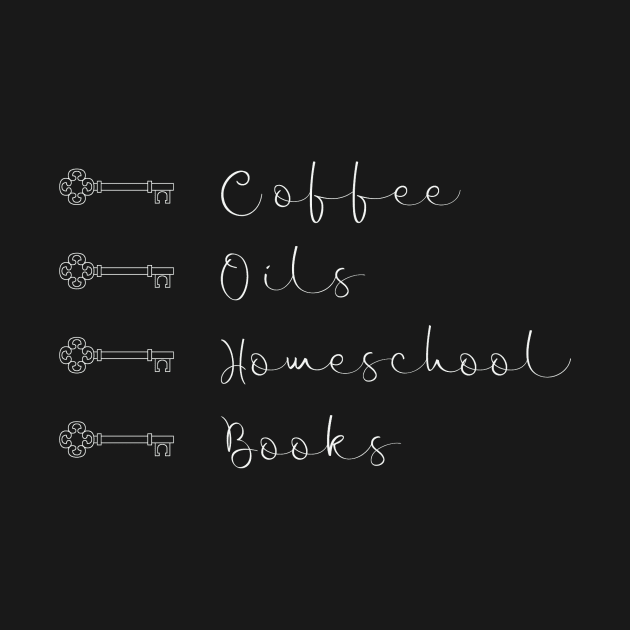 Coffee
Oils
Homeschool
Books